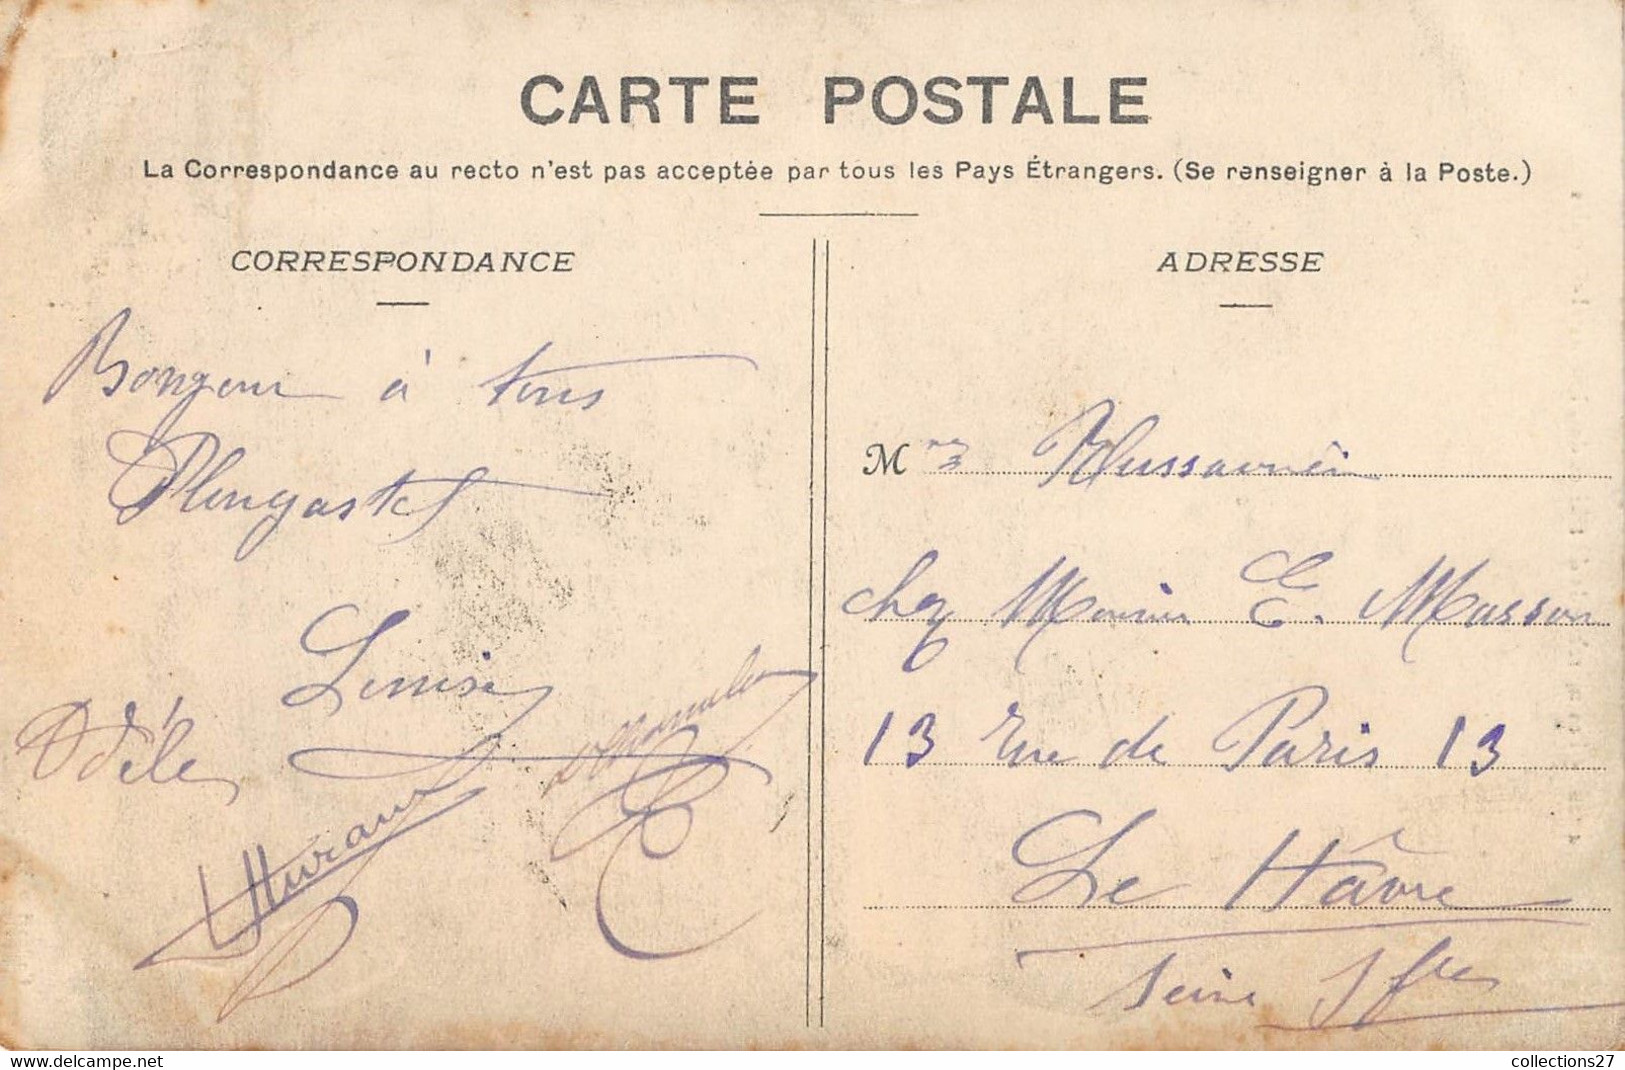 CARTE POSTALE
La Correspondance au recto n'est pas acceptée par tous les Pays Étrangers. (Se renseigner à la Poste.)
CORRESPONDANCE
Bonjour à tous
Plougastel
Louise
Odèle
ADRESSE
M
chez E. Masson
13 rue de Paris 13
Le Hâvre
Seine Infre
collections27